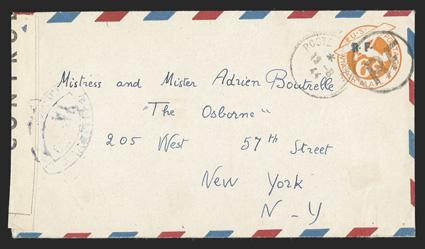 CONTRO
POSTE
R.F.
U.S.
6
AIR MAIL
Mistress and Mister Adrien Boutrelle
"The Osborne"
205 West 57th Street
New York
N-Y